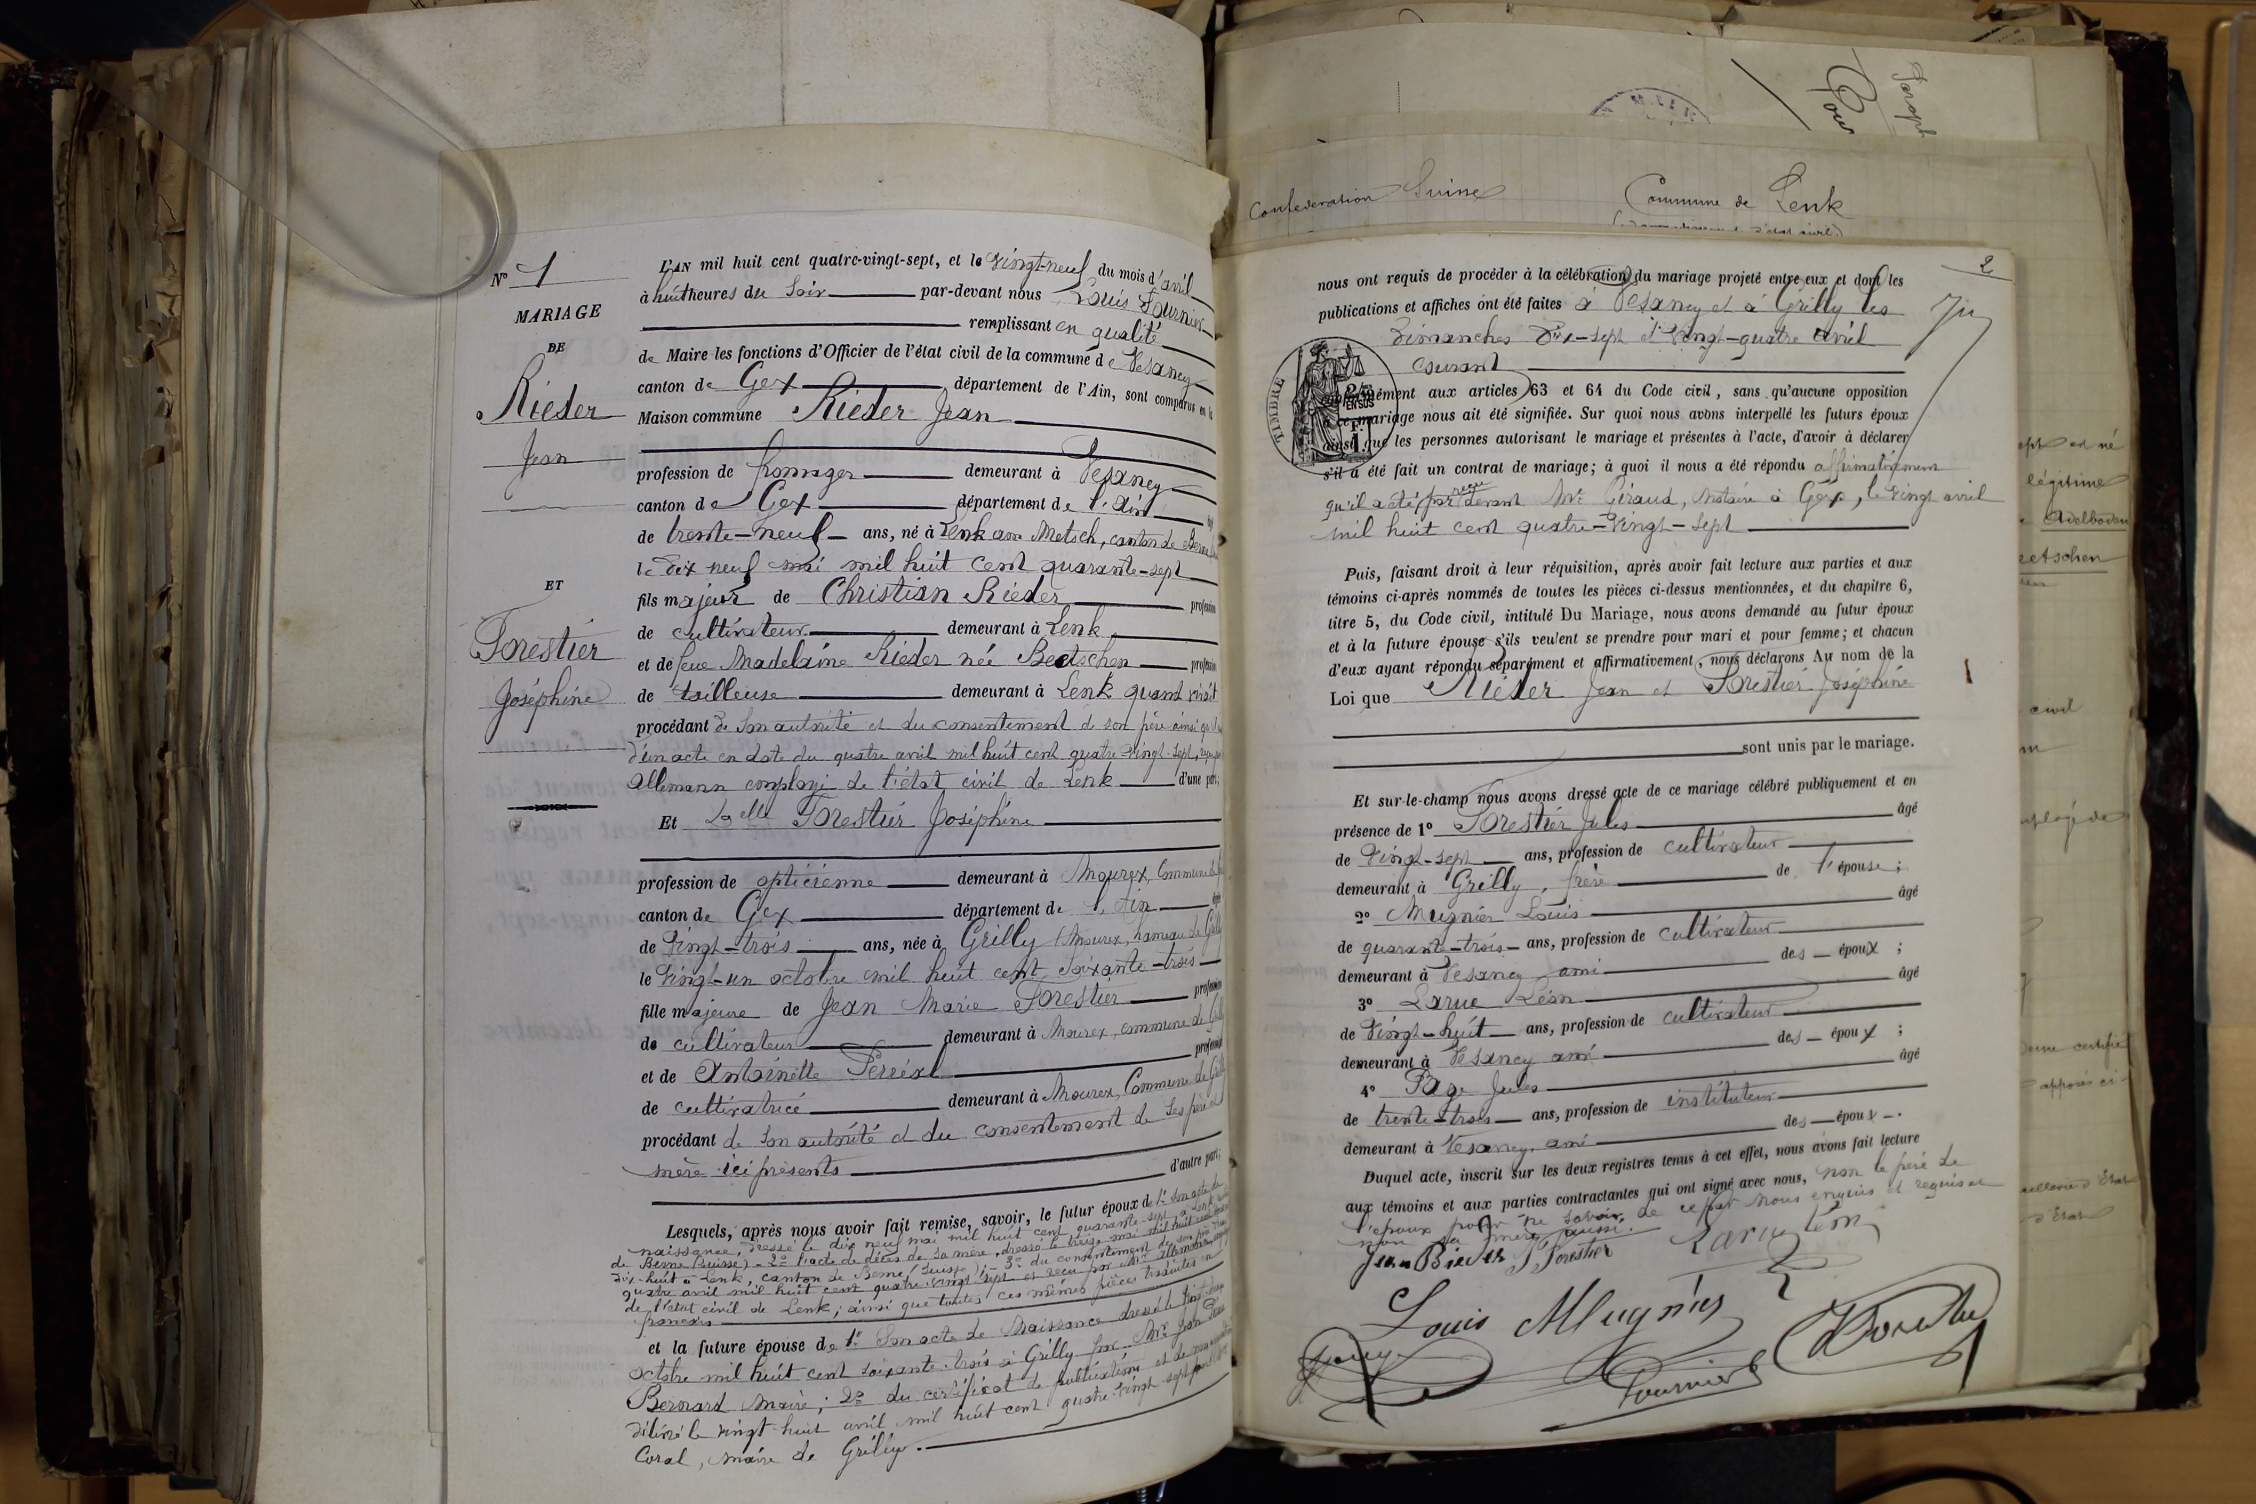 N° 1
MARIAGE
DE
Rieder
Jean
ET
Forestier
Joséphine
L'AN mil huit cent quatre-vingt-sept, et le vingt-neuf du mois d'avril
à huit heures du soir par-devant nous Louis Fournier
remplissant en qualité
de Maire les fonctions d'Officier de l'état civil de la commune de Vesancy
canton de Gex département de l'Ain, sont comparus en la
Maison commune Rieder Jean
profession de fromager demeurant à Vesancy
canton de Gex département de l'Ain
de trente-neuf ans, né à Lenk canton de Berne
le dix neuf mai mil huit cent quarante-sept
fils majeur de Christian Rieder profession
de cultivateur demeurant à Lenk
et de feue Madelaine Rieder née Beetschen profession
de tailleuse demeurant à Lenk quand vivait
procédant de son autorité et du consentement de son père ainsi qu'il
d'un acte en date du quatre avril mil huit cent quatre-vingt-sept, reçu par
Allemann employé de l'état civil de Lenk d'une part;
Et Delle Forestier Joséphine
profession de opticienne demeurant à Mourex, Commune de
canton de Gex département de l'Ain
de vingt-trois ans, née à Grilly (Mourex, hameau de Grilly
le vingt-un octobre mil huit cent soixante-trois
fille majeure de Jean Marie Forestier profession
de cultivateur demeurant à Mourex, commune de
et de Antoinette Perréal profession
de cultivatrice demeurant à Mourex, Commune de Grilly
procédant de son autorité et du consentement de ses père et
mère ici présents d'autre part;
Lesquels, après nous avoir fait remise, savoir, le futur époux de 1° son acte de
naissance, dressé le dix neuf mai mil huit cent quarante-sept à Lenk
de Berne (Suisse) - 2° l'acte de décès de sa mère, dressé le treize mai mil huit cent
dix-huit à Lenk, canton de Berne (Suisse); - 3° du consentement de son père
quatre avril mil huit cent quatre-vingt sept et reçu par Mr Allemann
de l'état civil de Lenk; ainsi que toutes ces mêmes pièces traduites en
français
et la future épouse de 1° Son acte de Naissance dressé le vingt-deux
octobre mil huit cent soixante-trois à Grilly par Mr Jean
Bernard Maire; 2° du certificat de publication et de non
délivré le vingt-huit avril mil huit cent quatre-vingt sept par
Coral, maire de Grilly.
Confédération Suisse
Commune de Lenk
2
nous ont requis de procéder à la célébration du mariage projeté entre eux et dont les
publications et affiches ont été faites à Vesancy et à Grilly les
Dimanches Dix-sept et vingt-quatre avril
courant
TIMBRE
conformément aux articles 63 et 64 du Code civil, sans qu'aucune opposition
à ce mariage nous ait été signifiée. Sur quoi nous avons interpellé les futurs époux
ainsi que les personnes autorisant le mariage et présentes à l'acte, d'avoir à déclarer
s'il a été fait un contrat de mariage; à quoi il nous a été répondu affirmativement
qu'il a été reçu par devant Mr Géraud, Notaire à Gex, le vingt avril
mil huit cent quatre-vingt-sept
Puis, faisant droit à leur réquisition, après avoir fait lecture aux parties et aux
témoins ci-après nommés de toutes les pièces ci-dessus mentionnées, et du chapitre 6,
titre 5, du Code civil, intitulé Du Mariage, nous avons demandé au futur époux
et à la future épouse s'ils veulent se prendre pour mari et pour femme; et chacun
d'eux ayant répondu séparément et affirmativement, nous déclarons Au nom de la
Loi que Rieder Jean et Forestier Joséphine
sont unis par le mariage.
Et sur-le-champ nous avons dressé acte de ce mariage célébré publiquement et en
présence de 1° Forestier Jules âgé
de vingt-sept ans, profession de cultivateur
demeurant à Grilly, frère de l'épouse;
2° Mugnier Louis âgé
de quarante-trois ans, profession de cultivateur
demeurant à Vesancy ami des époux;
3° Larue Léon âgé
de vingt-huit ans, profession de cultivateur
demeurant à Vesancy ami des époux;
4° Page Jules âgé
de trente-trois ans, profession de instituteur
demeurant à Vesancy, ami des époux.
Duquel acte, inscrit sur les deux registres tenus à cet effet, nous avons fait lecture
aux témoins et aux parties contractantes qui ont signé avec nous, non le père de
l'époux pour ne savoir, de ce par nous enquis et requis et
non sa mère aussi.
Jean Rieder J Forestier Larue Léon
Louis Mugnier
Fournier